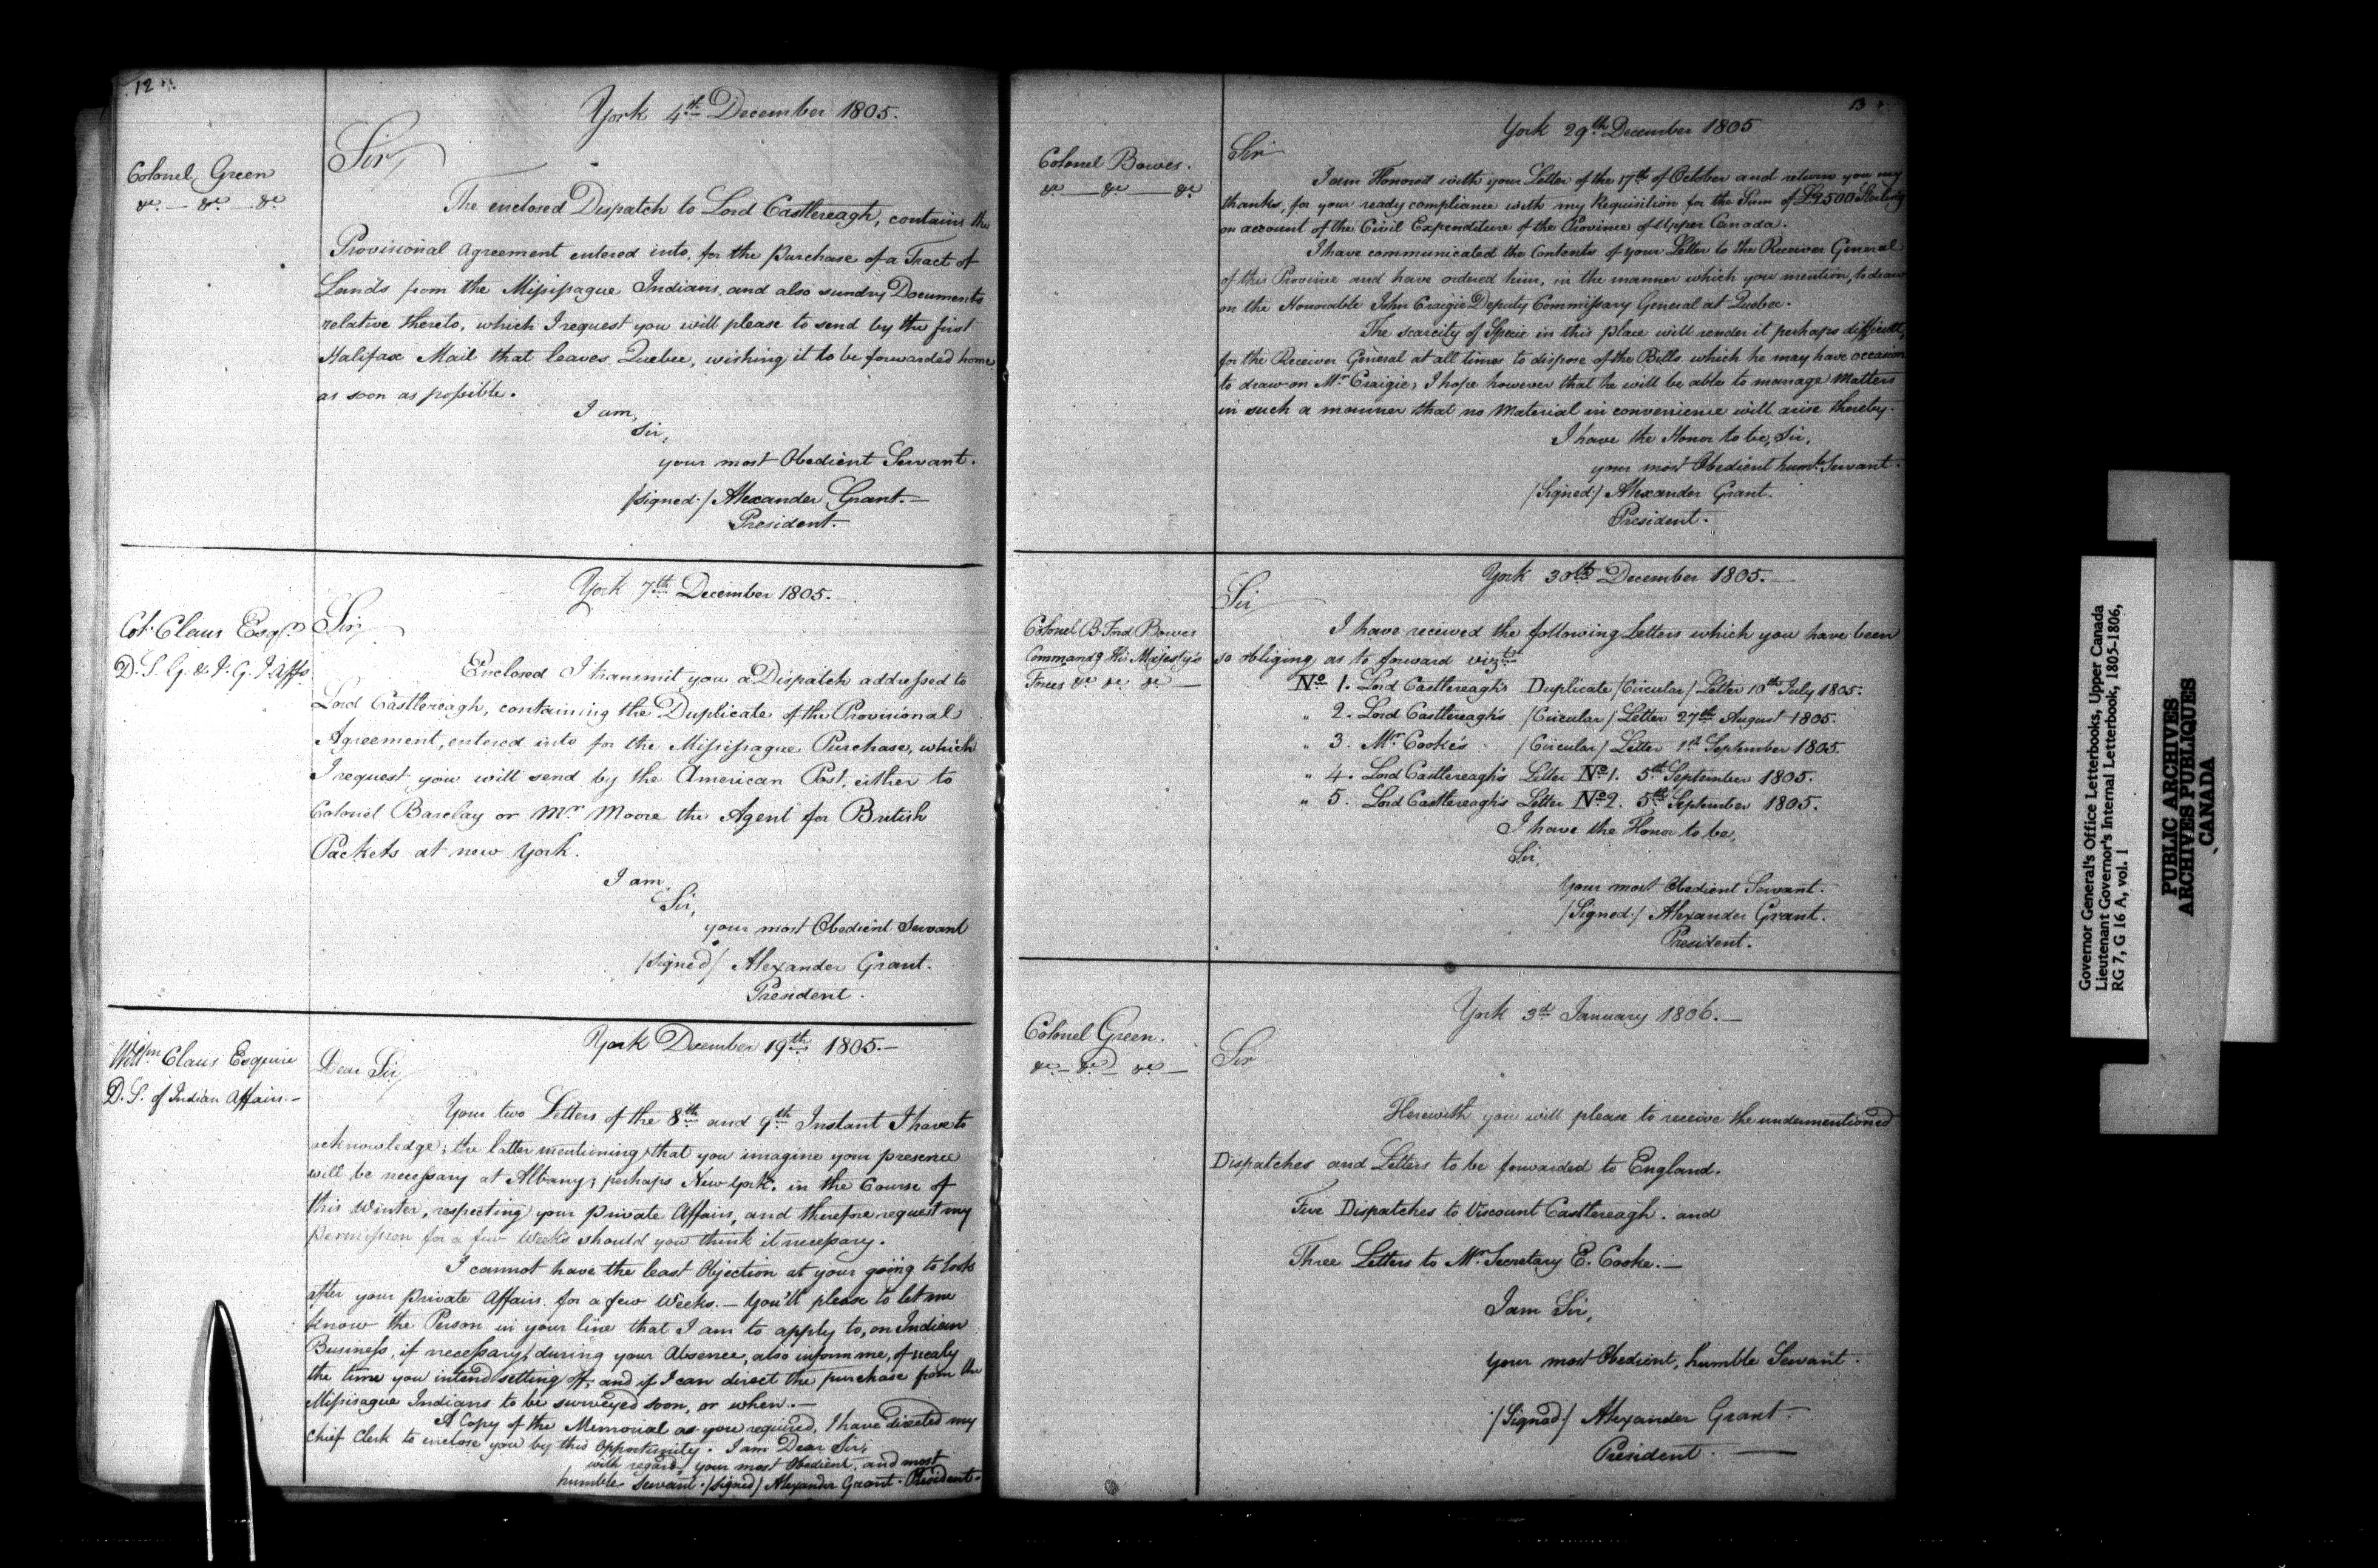 12
York 4th December 1805.
Colonel Green
&c. — &c. — &c
Sir,
The enclosed Dispatch to Lord Castlereagh, contains the
Provisional Agreement entered into, for the purchase of a Tract of
Lands from the Missisague Indians, and also sundry Documents
relative thereto, which I request you will please to send by the first
Halifax Mail that leaves Quebec, wishing it to be forwarded home
as soon as possible.
I am,
Sir,
your most Obedient Servant.
/signed./ Alexander Grant.—
President.—
York 7th December 1805.—
Col. Claus Esqr.
D. S. G. & I. G. I. Affs
Sir,
Enclosed I transmit you a Dispatch addressed to
Lord Castlereagh, containing the Duplicate of the Provisional
Agreement, entered into for the Missisague Purchase, which
I request you will send by the American Post, either to
Colonel Barclay or Mr. Moore the Agent for British
Packets at new York.
I am,
Sir,
your most Obedient Servant
/signed/ Alexander Grant.
President.
York December 19th 1805.—
Willm Claus Esquire
D. S. of Indian Affairs.—
Dear Sir,
Your two Letters of the 8th and 9th Instant I have to
acknowledge; the latter mentioning that you imagine your presence
will be necessary at Albany; perhaps New York, in the Course of
this Winter, respecting your private Affairs, and therefore request my
permission for a few Weeks should you think it necessary.
I cannot have the least Objection at your going to look
after your Private Affairs for a few Weeks.— You'll please to let me
know the Person in your line that I am to apply to, on Indian
Business, if necessary, during your Absence, also inform me, of nealy
the time you intend setting off, and if I can direct the purchase from the
Missisague Indians to be surveyed soon, or when.—
A Copy of the Memorial as you required, I have directed my
Chief Clerk to enclose you by this Opportunity. I am Dear Sir,
with regard, your most Obedient, and most
humble Servant. /signed/ Alexander Grant. President.
13
York 29th December 1805
Colonel Bowes.
&c — &c — &c
Sir
I am Honored with your Letter of the 17th of October and return you my
thanks, for your ready compliance with my Requisition for the Sum of £2500 Sterling
on account of the Civil Expenditure of the Province of Upper Canada.
I have communicated the Contents of your Letter to the Receiver General
of this Province and have ordered him, in the manner which you mention, to draw
on the Honorable John Craigie Deputy Commissary General at Quebec.
The scarcity of Specie in this place will render it perhaps difficult,
for the Receiver General at all times to dispose of the Bills which he may have occasion
to draw on Mr. Craigie; I hope however that he will be able to manage Matters
in such a manner that no Material inconvenience will arise thereby.
I have the Honor to be, Sir,
your most Obedient humle. Servant.
/Signed./ Alexander Grant.
President.
York 30th December 1805.—
Colonel B. Ford Bowes
Commandg His Majesty's
Forces &c &c &c —
Sir
I have received the following Letters which you have been
so obliging, as to forward vizt
No. 1. Lord Castlereagh's Duplicate /Circular/ Letter 10th July 1805.
" 2. Lord Castlereagh's /Circular/ Letter 27th August 1805.
" 3. Mr. Cooke's /Circular/ Letter 1st September 1805.
" 4. Lord Castlereagh's Letter No. 1. 5th September 1805.
" 5. Lord Castlereagh's Letter No. 2. 5th September 1805.
I have the Honor to be,
Sir,
Your most Obedient Servant.
/Signed./ Alexander Grant.
President.
York 3d January 1806.—
Colonel Green.
&c — &c — &c —
Sir
Herewith you will please to receive the undermentioned
Dispatches and Letters to be forwarded to England.
Five Dispatches to Viscount Castlereagh. and
Three Letters to Mr. Secretary E. Cooke.—
I am Sir,
your most Obedient, humble Servant.
/Signed./ Alexander Grant.
President.—
Governor General's Office Letterbooks, Upper Canada
Lieutenant Governor's Internal Letterbook, 1805-1806,
RG 7, G 16 A, vol. 1
PUBLIC ARCHIVES
ARCHIVES PUBLIQUES
CANADA